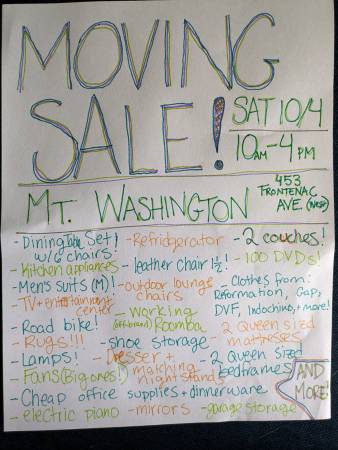 MOVING
SALE!
SAT 10/4
10AM-4PM
MT. WASHINGTON
453
FRONTENAC
AVE.
- Dining Table Set!
w/6 chairs!
- Refrigerator
- 2 couches!
- Kitchen appliances
- leather Chair 1½!
- 100 DVDs!
- Men's Suits (M)!
- outdoor lounge
chairs
- Clothes from:
Reformation, Gap,
DVF, Indochino, + more!
- TV + entertainment
center
- Working
(off-brand) Roomba
- Road bike!
- Rugs!!!
- shoe storage
- 2 Queen sized
mattresses
- Lamps!
- Dresser +
matching
nightstands
- 2 Queen Sized
bedframes
- Fans (Big ones!)
- Cheap office supplies + dinnerware
- electric piano
- mirrors
- garage storage
AND
MORE!